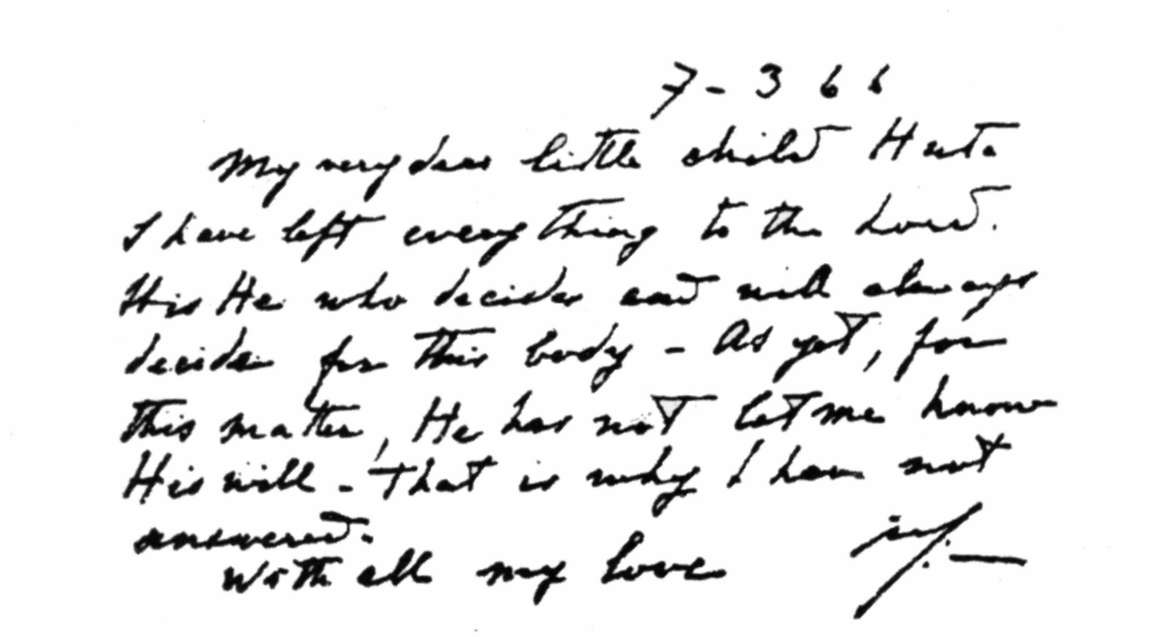 7-3 66
My very dear little child Huta
I have left everything to the Lord.
It is He who decides and will always
decide for this body - As yet, for
this matter, He has not let me know
His will - That is why I have not
answered.
With all my love